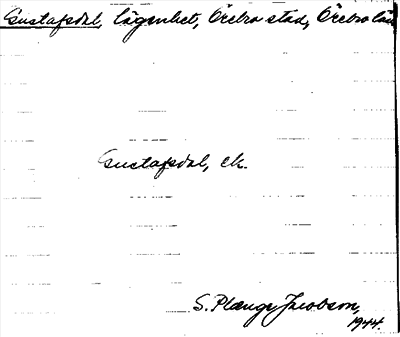 Gustafsdal, lägenhet, Örebro stad, Örebro län
Gustafsdal, ek.
S. Plange Jacobson,
1944.